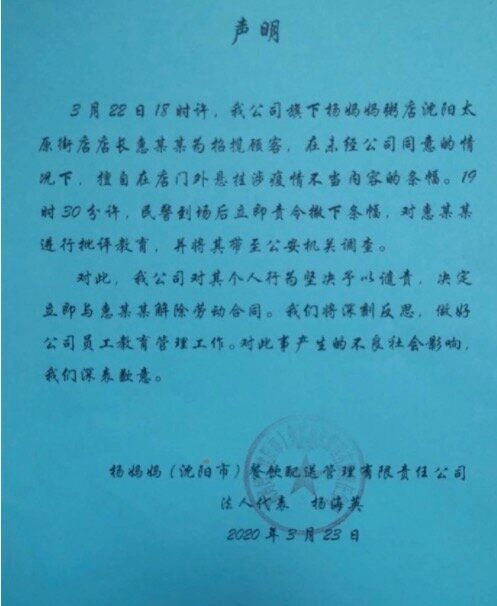 声明
3月22日18时许，我公司旗下杨妈妈粥店沈阳太
原街店店长惠某某为招揽顾客，在未经公司同意的情
况下，擅自在店门外悬挂涉疫情不当内容的条幅。19
时30分许，民警到场后立即责令撤下条幅，对惠某某
进行批评教育，并将其带至公安机关调查。
对此，我公司对其个人行为坚决予以谴责，决定
立即与惠某某解除劳动合同。我们将深刻反思，做好
公司员工教育管理工作。对此事产生的不良社会影响，
我们深表歉意。
杨妈妈（沈阳市）餐饮配送管理有限责任公司
法人代表 杨海英
2020年3月23日